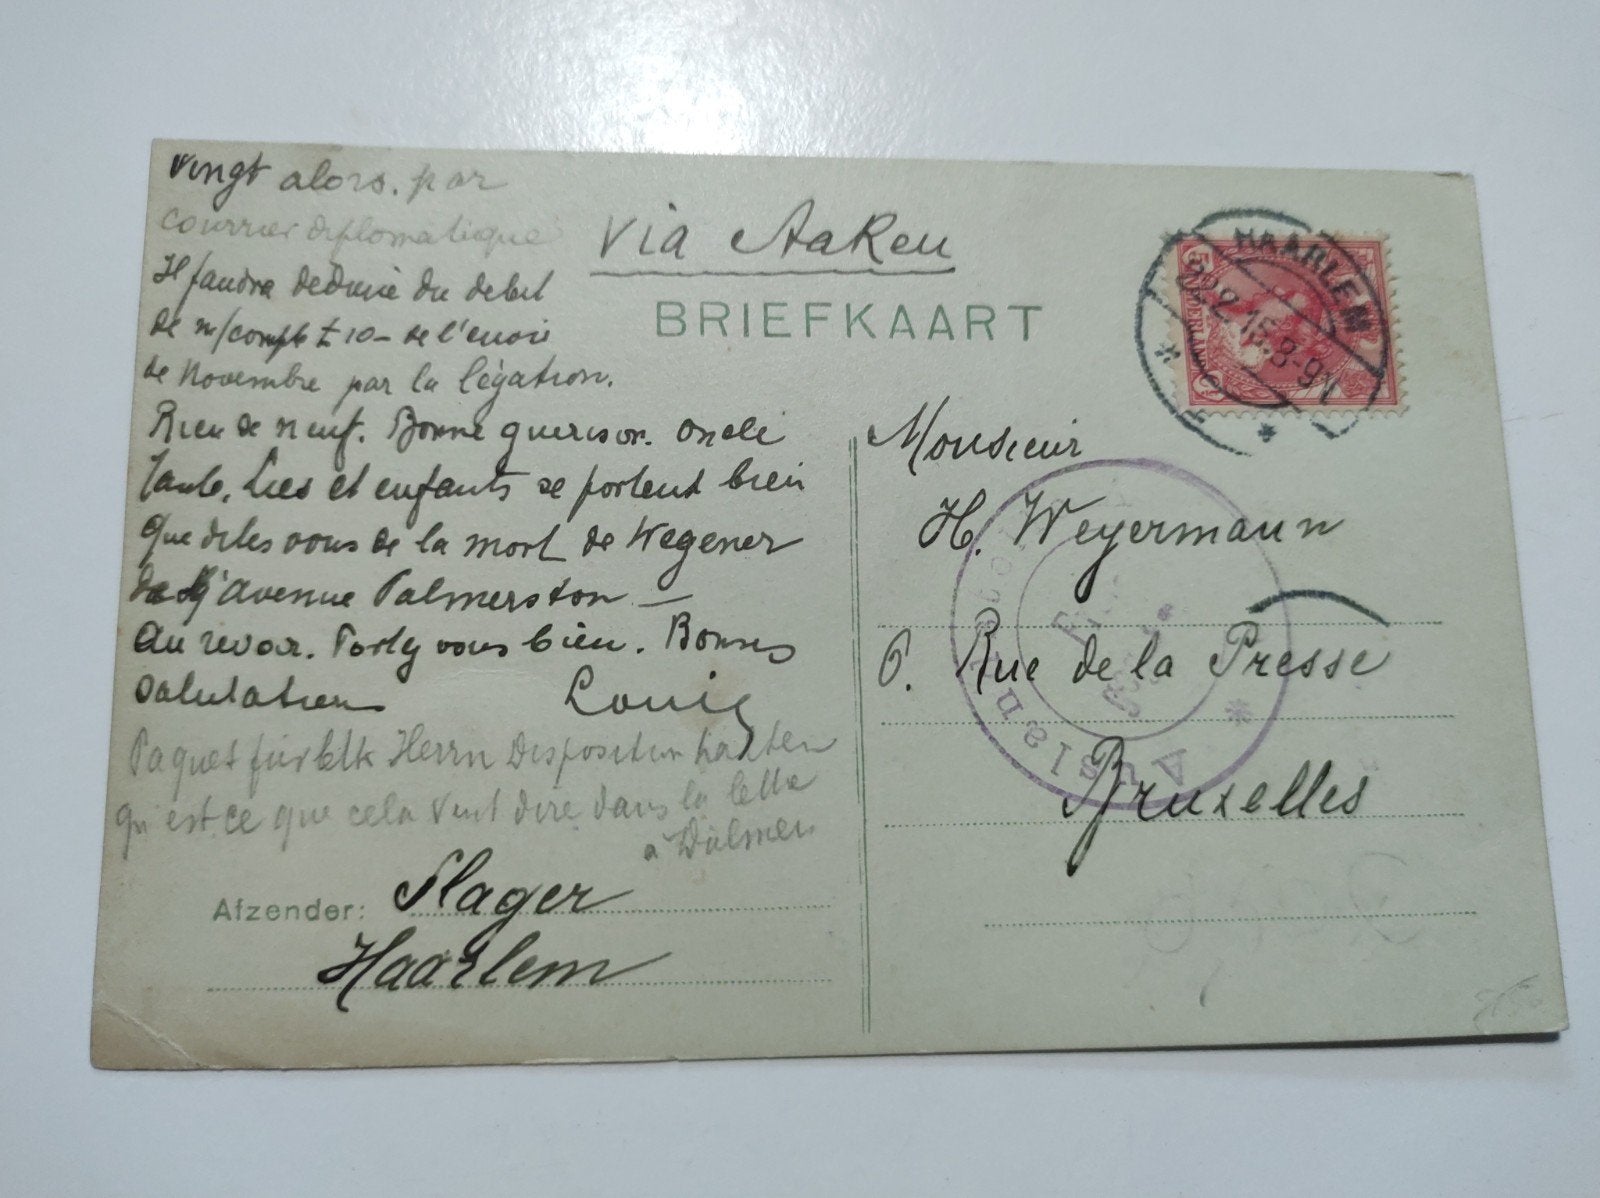 vingt alors. par
courrier diplomatique
Il faudra déduire du debit
de m/compte £ 10 – de l'envoi
de Novembre par la légation.
Rien de neuf. Bonne guerison. oncle
tante, Lies et enfants se portent bien
Que dites vous de la mort de Wegener
avenue Palmerston —
Au revoir. Portez vous bien. Bonnes
salutations Louis
Paquet für Herrn Disposition halten
qu'est ce que cela veut dire dans la lettre
à Dülmen
Afzender: Slager
Haarlem
via Aaken
BRIEFKAART
HAARLEM
2.15.8-9N
NEDERLAND
5
Monsieur
H. Weyermann
6. Rue de la Presse
Bruxelles
Ausland